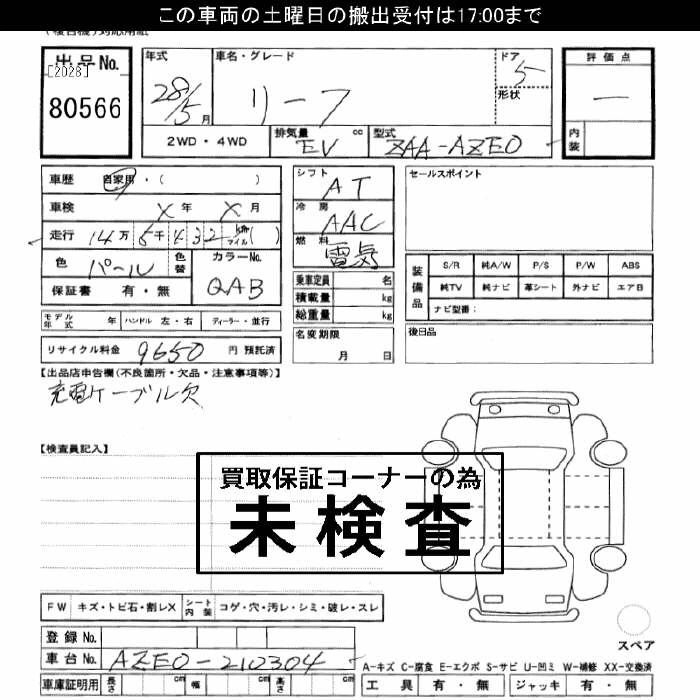 この車両の土曜日の搬出受付は17:00まで
出品No.
[2028]
80566
年式 車名・グレード ドア 評価点
28/5月 リーフ 5 形状 —
2WD・4WD 排気量 EV cc 型式 ZAA-AZE0 内装
車歴 自家用・( )
車検 X年 X月
走行 14万5千432km マイル( )
色 パール 色替 カラーNo. QAB
保証書 有・無
モデル年式 年 ハンドル 左・右 ディーラー・並行
リサイクル料金 9650 円 預託済
シフト AT
冷房 AAC
燃料 電気
乗車定員 名
積載量 kg
総重量 kg
名変期限 月 日
セールスポイント
装備品 S/R 純A/W P/S P/W ABS
純TV 純ナビ 革シート 外ナビ エアB
ナビ型番:
後日品
【出品店申告欄(不良箇所・欠品・注意事項等)】
充電ケーブル欠
【検査員記入】
買取保証コーナーの為
未検査
FW キズ・トビ石・割レX シート内装 コゲ・穴・汚レ・シミ・破レ・スレ
登録No.
車台No. AZE0-210304
スペア
A-キズ C-腐食 E-エクボ S-サビ U-凹ミ W-補修 XX-交換済
車庫証明用 長さ cm 幅 cm 高さ cm 工具 有・無 ジャッキ 有・無